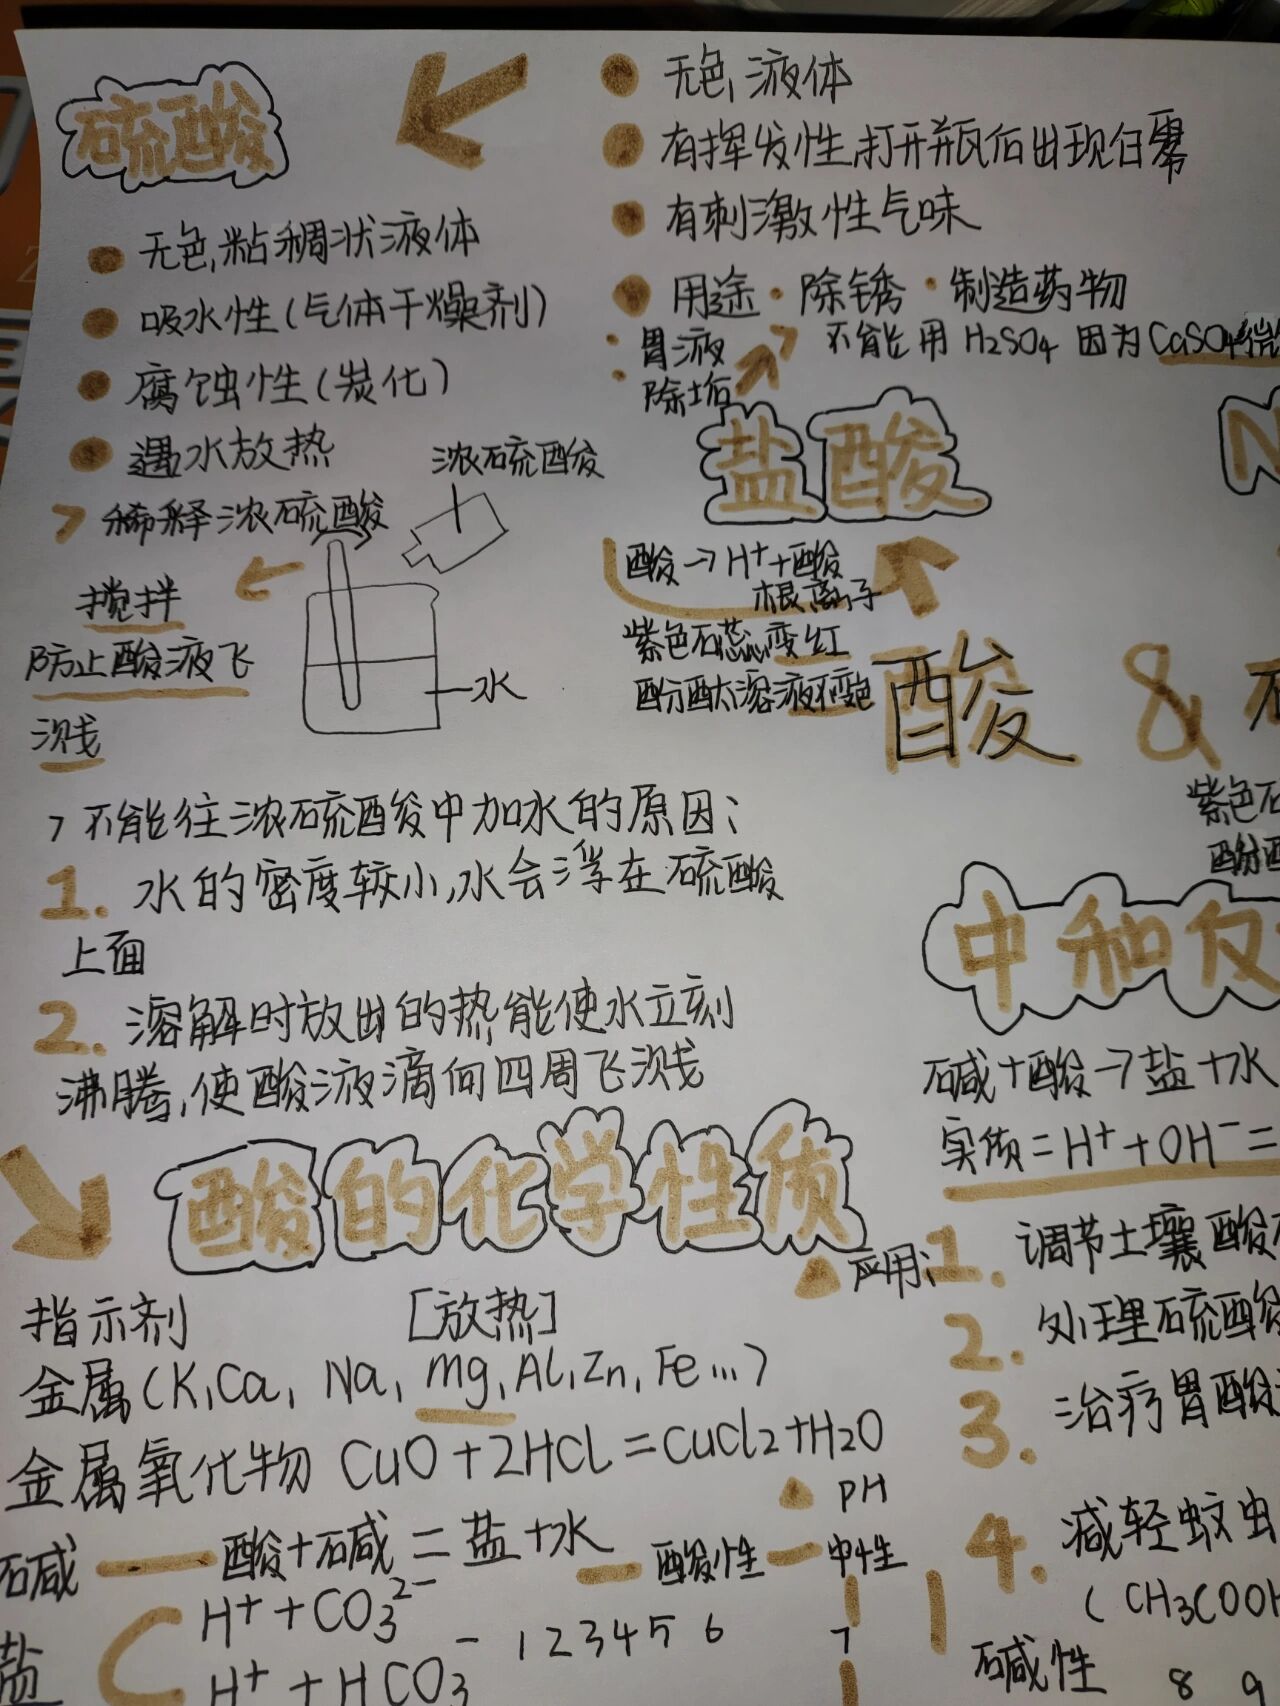 硫酸
无色,粘稠状液体
吸水性(气体干燥剂)
腐蚀性(炭化)
遇水放热
> 稀释浓硫酸
浓硫酸
搅拌
防止酸液飞
溅
水
> 不能往浓硫酸中加水的原因:
1. 水的密度较小,水会浮在硫酸
上面
2. 溶解时放出的热能使水立刻
沸腾,使酸液滴向四周飞溅
无色,液体
有挥发性,打开瓶后出现白雾
有刺激性气味
用途·除锈·制造药物
·胃液
·除垢
不能用 H₂SO₄ 因为 CaSO₄
盐酸
N
酸→H⁺+酸
根离子
紫色石蕊变红
酚酞溶液不变色
酸 &
紫色石
酚酞
中和反
碱+酸→盐+水
实质=H⁺+OH⁻=
应用:
1. 调节土壤酸
2. 处理硫酸
3. 治疗胃酸
4. 减轻蚊虫
(CH₃COOH
酸的化学性质
指示剂 [放热]
金属(K,Ca, Na, Mg,Al,Zn,Fe...)
金属氧化物 CuO+2HCl=CuCl₂+H₂O
碱 — 酸+碱=盐+水
盐
H⁺+CO₃²⁻
H⁺+HCO₃⁻
PH
酸性 中性
碱性
1 2 3 4 5 6 7
8 9